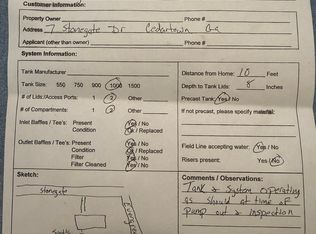 Customer Information:
Property Owner Phone #
Address 7 Stonegate Dr Cedartown Ga
Applicant (other than owner) Phone #
System Information:
Tank Manufacturer
Tank Size: 550 750 900 1000 1500
# of Lids/Access Ports: 1 2 Other
# of Compartments: 1 2 Other
Inlet Baffles / Tee's: Present Yes / No
Condition Ok / Replaced
Outlet Baffles / Tee's: Present Yes / No
Condition Ok / Replaced
Filter Yes / No
Filter Cleaned Yes / No
Distance from Home: 10 Feet
Depth to Tank Lids: 8 Inches
Precast Tank: Yes / No
If not precast, please specify material:
Field Line accepting water: Yes / No
Risers present: Yes / No
Sketch:
Stonegate
Evergreen
Comments / Observations:
Tank & System operating
as should at time of
pump out & inspection